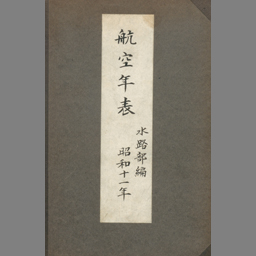 航空年表
水路部編
昭和十一年